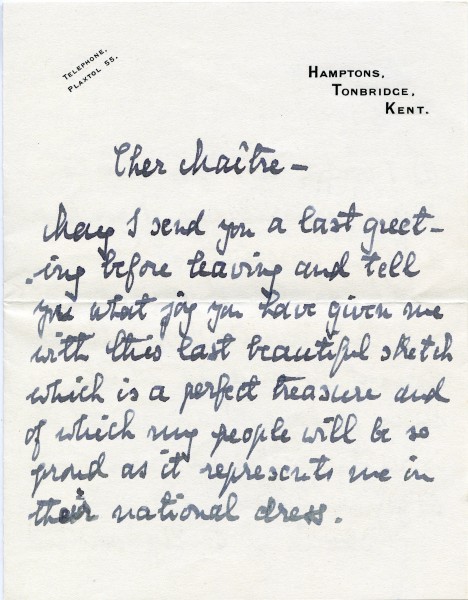 TELEPHONE,
PLAXTOL 55.
HAMPTONS,
TONBRIDGE,
KENT.
Cher Maître –
May I send you a last greet-
ing before leaving and tell
you what joy you have given me
with this last beautiful sketch
which is a perfect treasure and
of which my people will be so
proud as it represents me in
their national dress.